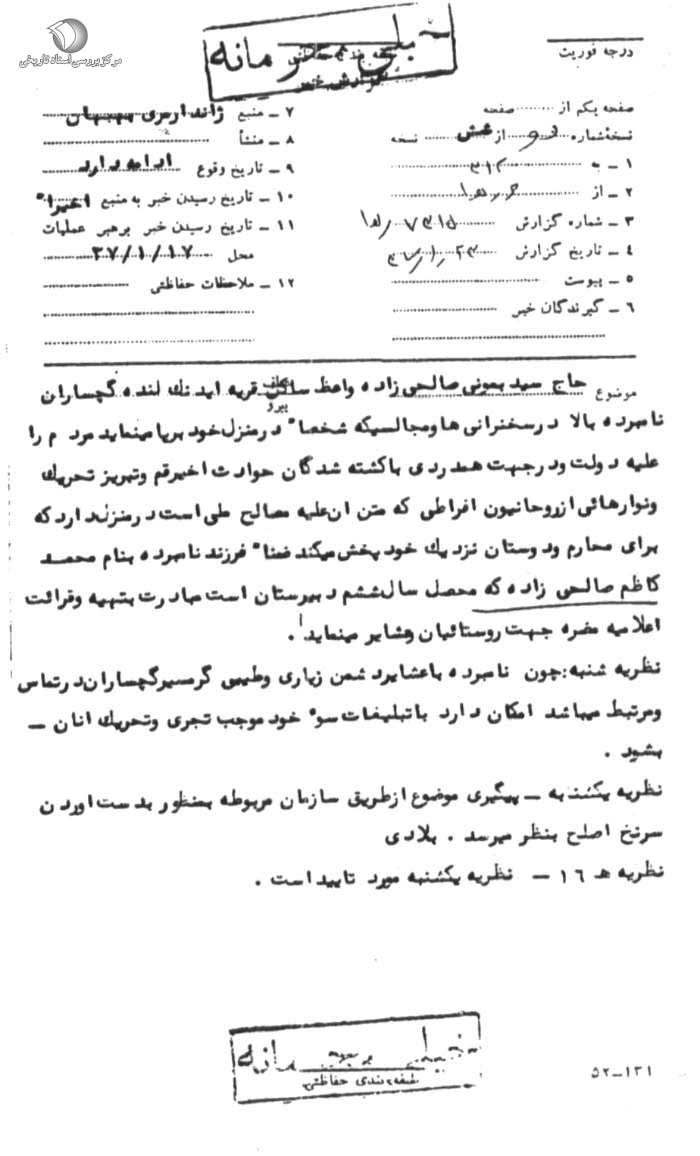 مرکز بررسی اسناد تاریخی
خیلی محرمانه
گزارش خبر
درجه فوریت
صفحه یکم از صفحه
نسخه شماره دو از شش نسخه
۱ – به ۳۱۲
۲ – از
۳ – شماره گزارش
۴ – تاریخ گزارش
۵ – پیوست
۶ – گیرندگان خبر
۷ – منبع ژاندارمری بهبهان
۸ – منشأ
۹ – تاریخ وقوع ادامه دارد
۱۰ – تاریخ رسیدن خبر به منبع اخیرا"
۱۱ – تاریخ رسیدن خبر برهبر عملیات
محل ۳۷/۱/۱۷
۱۲ – ملاحظات حفاظتی
موضوع حاج سید بمونی صالحی زاده واعظ ساکن قریه ایدنک لنده گچساران
نامبرده بالا در سخنرانی ها و مجالسیکه شخصا" در منزل خود برپا مینماید مردم را
علیه دولت و در جهت همدردی با کشته شدگان حوادث اخیر قم و تبریز تحریک
و نوارهائی از روحانیون افراطی که متن ان علیه مصالح ملی است در منزل دارد که
برای محارم و دوستان نزدیک خود پخش میکند ضمنا" فرزند نامبرده بنام محمد
کاظم صالحی زاده که محصل سال ششم دبیرستان است مبادرت بتهیه و قرائت
اعلامیه مضره جهت روستائیان و عشایر مینماید .
نظریه شنبه: چون نامبرده با عشایر دشمن زیاری و طیبی گرمسیر گچساران در تماس
و مرتبط میباشد امکان دارد با تبلیغات سوء خود موجب تجری و تحریک انان –
بشود .
نظریه یکشنبه – پیگیری موضوع از طریق سازمان مربوطه بمنظور بدست اوردن
سرنخ اصلح بنظر میرسد . بلادی
نظریه هـ ۱۶ – نظریه یکشنبه مورد تایید است .
طبقه بندی حفاظتی
۵۲–۱۳۱